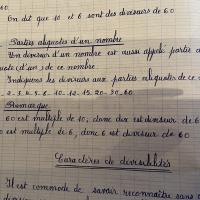 60.
On dit que 10 et 6 sont des diviseurs de 60
Parties aliquotes d'un nombre
Un diviseur d'un nombre est aussi appelé partie a
uote (d'un) de ce nombre
Indiquons les diviseurs aux parties aliquotes de ce
2. 3. 4. 5. 6. 10. 12. 15. 20. 30. 60
Remarque
60 est multiple de 10; donc dix est diviseur de 6
0 est multiple de 6, donc 6 est diviseur de 60
Caractères de divisibilités
Il est commode de savoir reconnaître sans